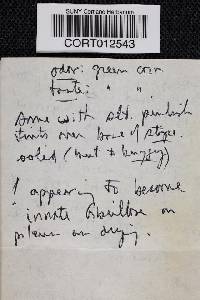 SUNY Cortland Herbarium
CORT012543
odor: green corn
taste: " "
some with slt. pinkish
tints over base of stipe
(& buggy)
appearing to become
innate fibrillose on
on drying.